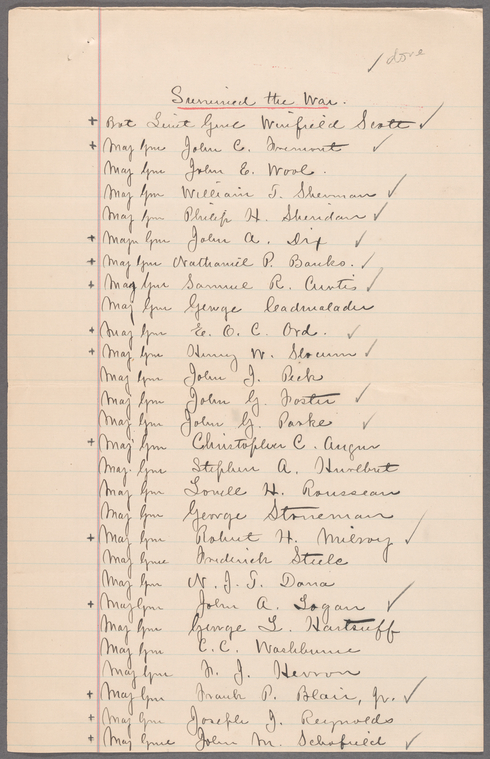 ✓ done
Survived the War.
+ Bvt Lieut Genl Winfield Scott ✓
+ Maj Gen John C. Fremont ✓
Maj Gen John E. Wool.
Maj Gen William T. Sherman ✓
Maj Gen Philip H. Sheridan ✓
+ Maj Gen John A. Dix ✓
+ Maj Gen Nathaniel P. Banks. ✓
+ Maj Gen Samuel R. Curtis ✓
Maj Gen George Cadwalader
+ Maj Gen E. O. C. Ord. ✓
+ Maj Gen Henry W. Slocum ✓
Maj Gen John J. Peck
Maj Gen John G. Foster ✓
Maj Gen John G. Parke ✓
+ Maj Gen Christopher C. Augur
Maj. Gen Stephen A. Hurlbut
Maj Gen Lovell H. Rousseau
Maj Gen George Stoneman
+ Maj Gen Robert H. Milroy ✓
Maj Gen Frederick Steele
Maj Gen N. J. T. Dana
+ Maj Gen John A. Logan ✓
Maj Gen George L. Hartsuff
Maj Gen C. C. Washburne
Maj Gen F. J. Herron
+ Maj Gen Frank P. Blair, Jr. ✓
+ Maj Gen Joseph J. Reynolds
+ Maj Gen John M. Schofield ✓